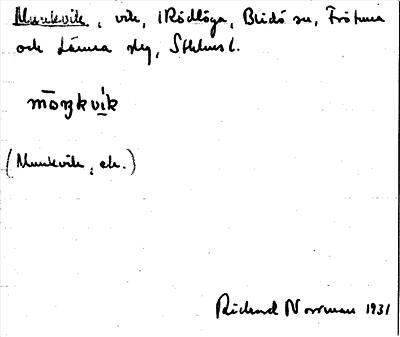 Munkvik, vik, i Rödlöga, Blidö sn, Frötuna
och Länna slg, Sthlms l.
mōŋkvìk
(Munkvik, ek.)
Richard Norrman 1931